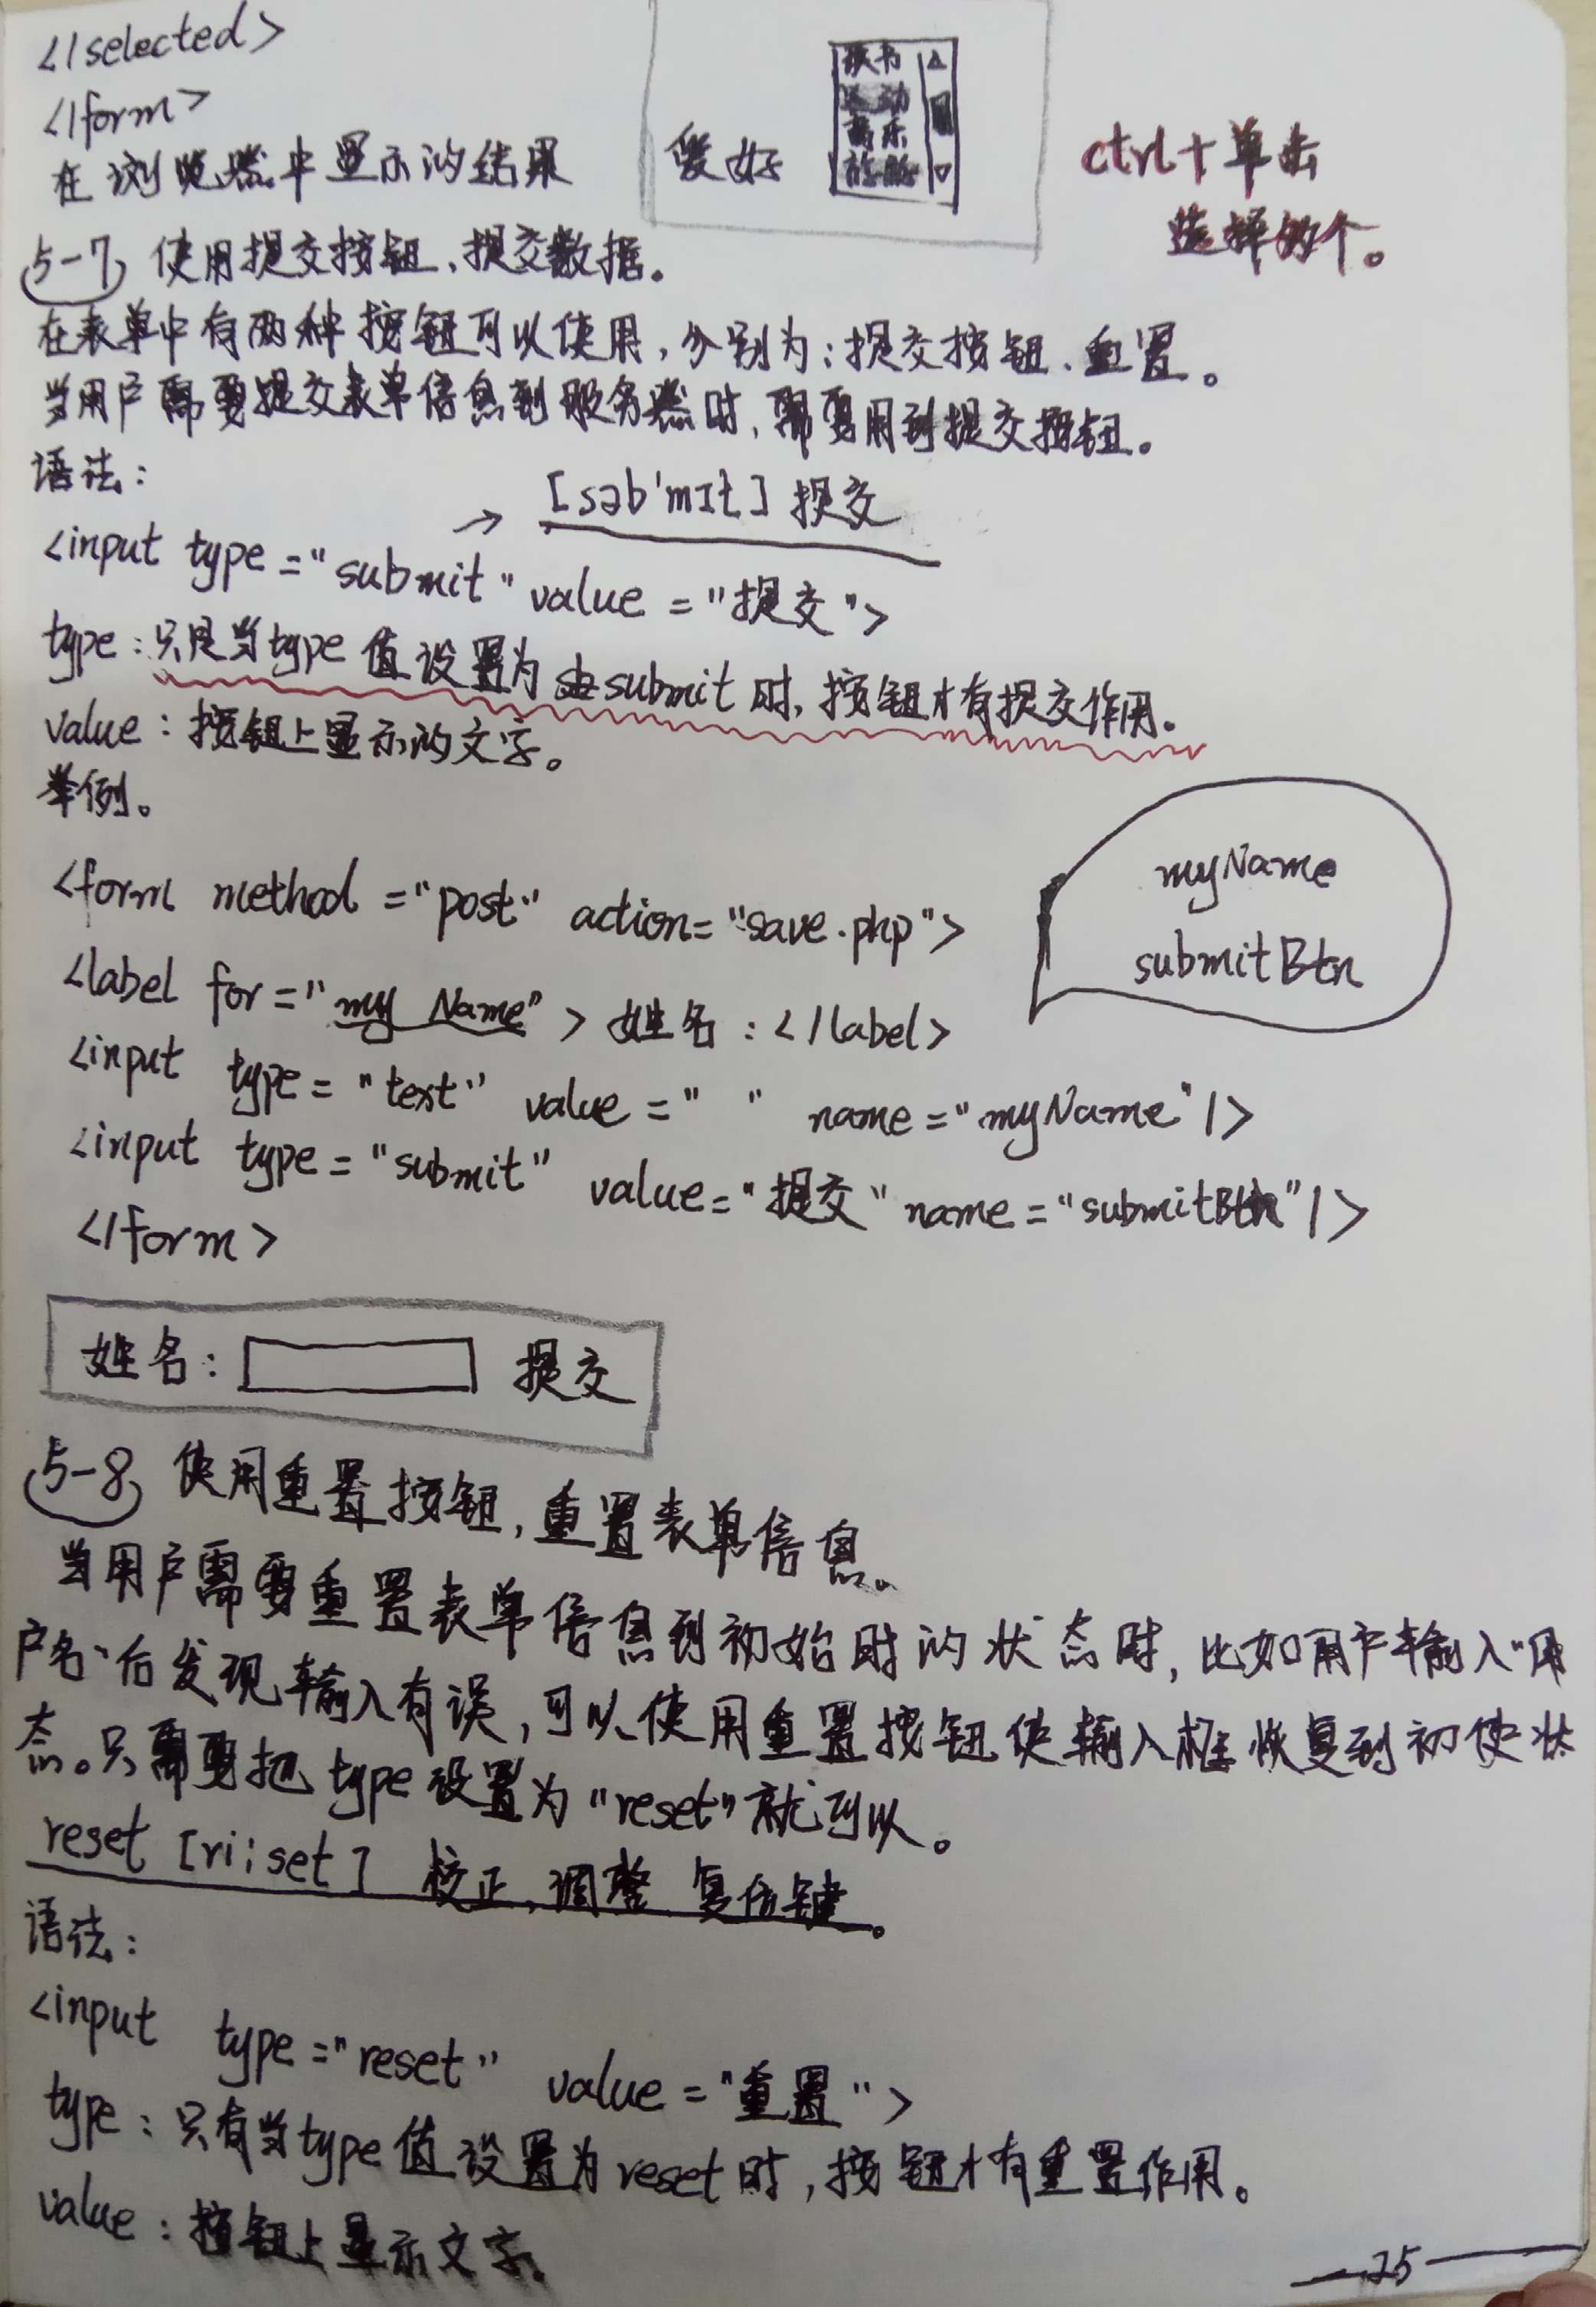 </selected>
</form>
在浏览器中显示的结果
爱好
读书
运动
音乐
旅游
ctrl+单击
选择多个。
5-7 使用提交按钮、提交数据。
在表单中有两种按钮可以使用，分别为：提交按钮、重置。
当用户需要提交表单信息到服务器时，需要用到提交按钮。
语法：
→ [səb'mɪt] 提交
<input type="submit" value="提交">
type：只是当type值设置为submit时，按钮才有提交作用。
value：按钮上显示的文字。
举例。
<form method="post" action="save.php">
<label for="my Name">姓名：</label>
<input type="text" value=" " name="myName"/>
<input type="submit" value="提交" name="submitBtn"/>
</form>
myName
submitBtn
姓名： 提交
5-8 使用重置按钮，重置表单信息。
当用户需要重置表单信息到初始时的状态时，比如用户输入"用
户名"后发现输入有误，可以使用重置按钮使输入框恢复到初使状
态。只需要把type设置为"reset"就可以。
reset [ri:set] 校正、调整 复位键。
语法：
<input type="reset" value="重置">
type：只有当type值设置为reset时，按钮才有重置作用。
value：按钮上显示文字。
25